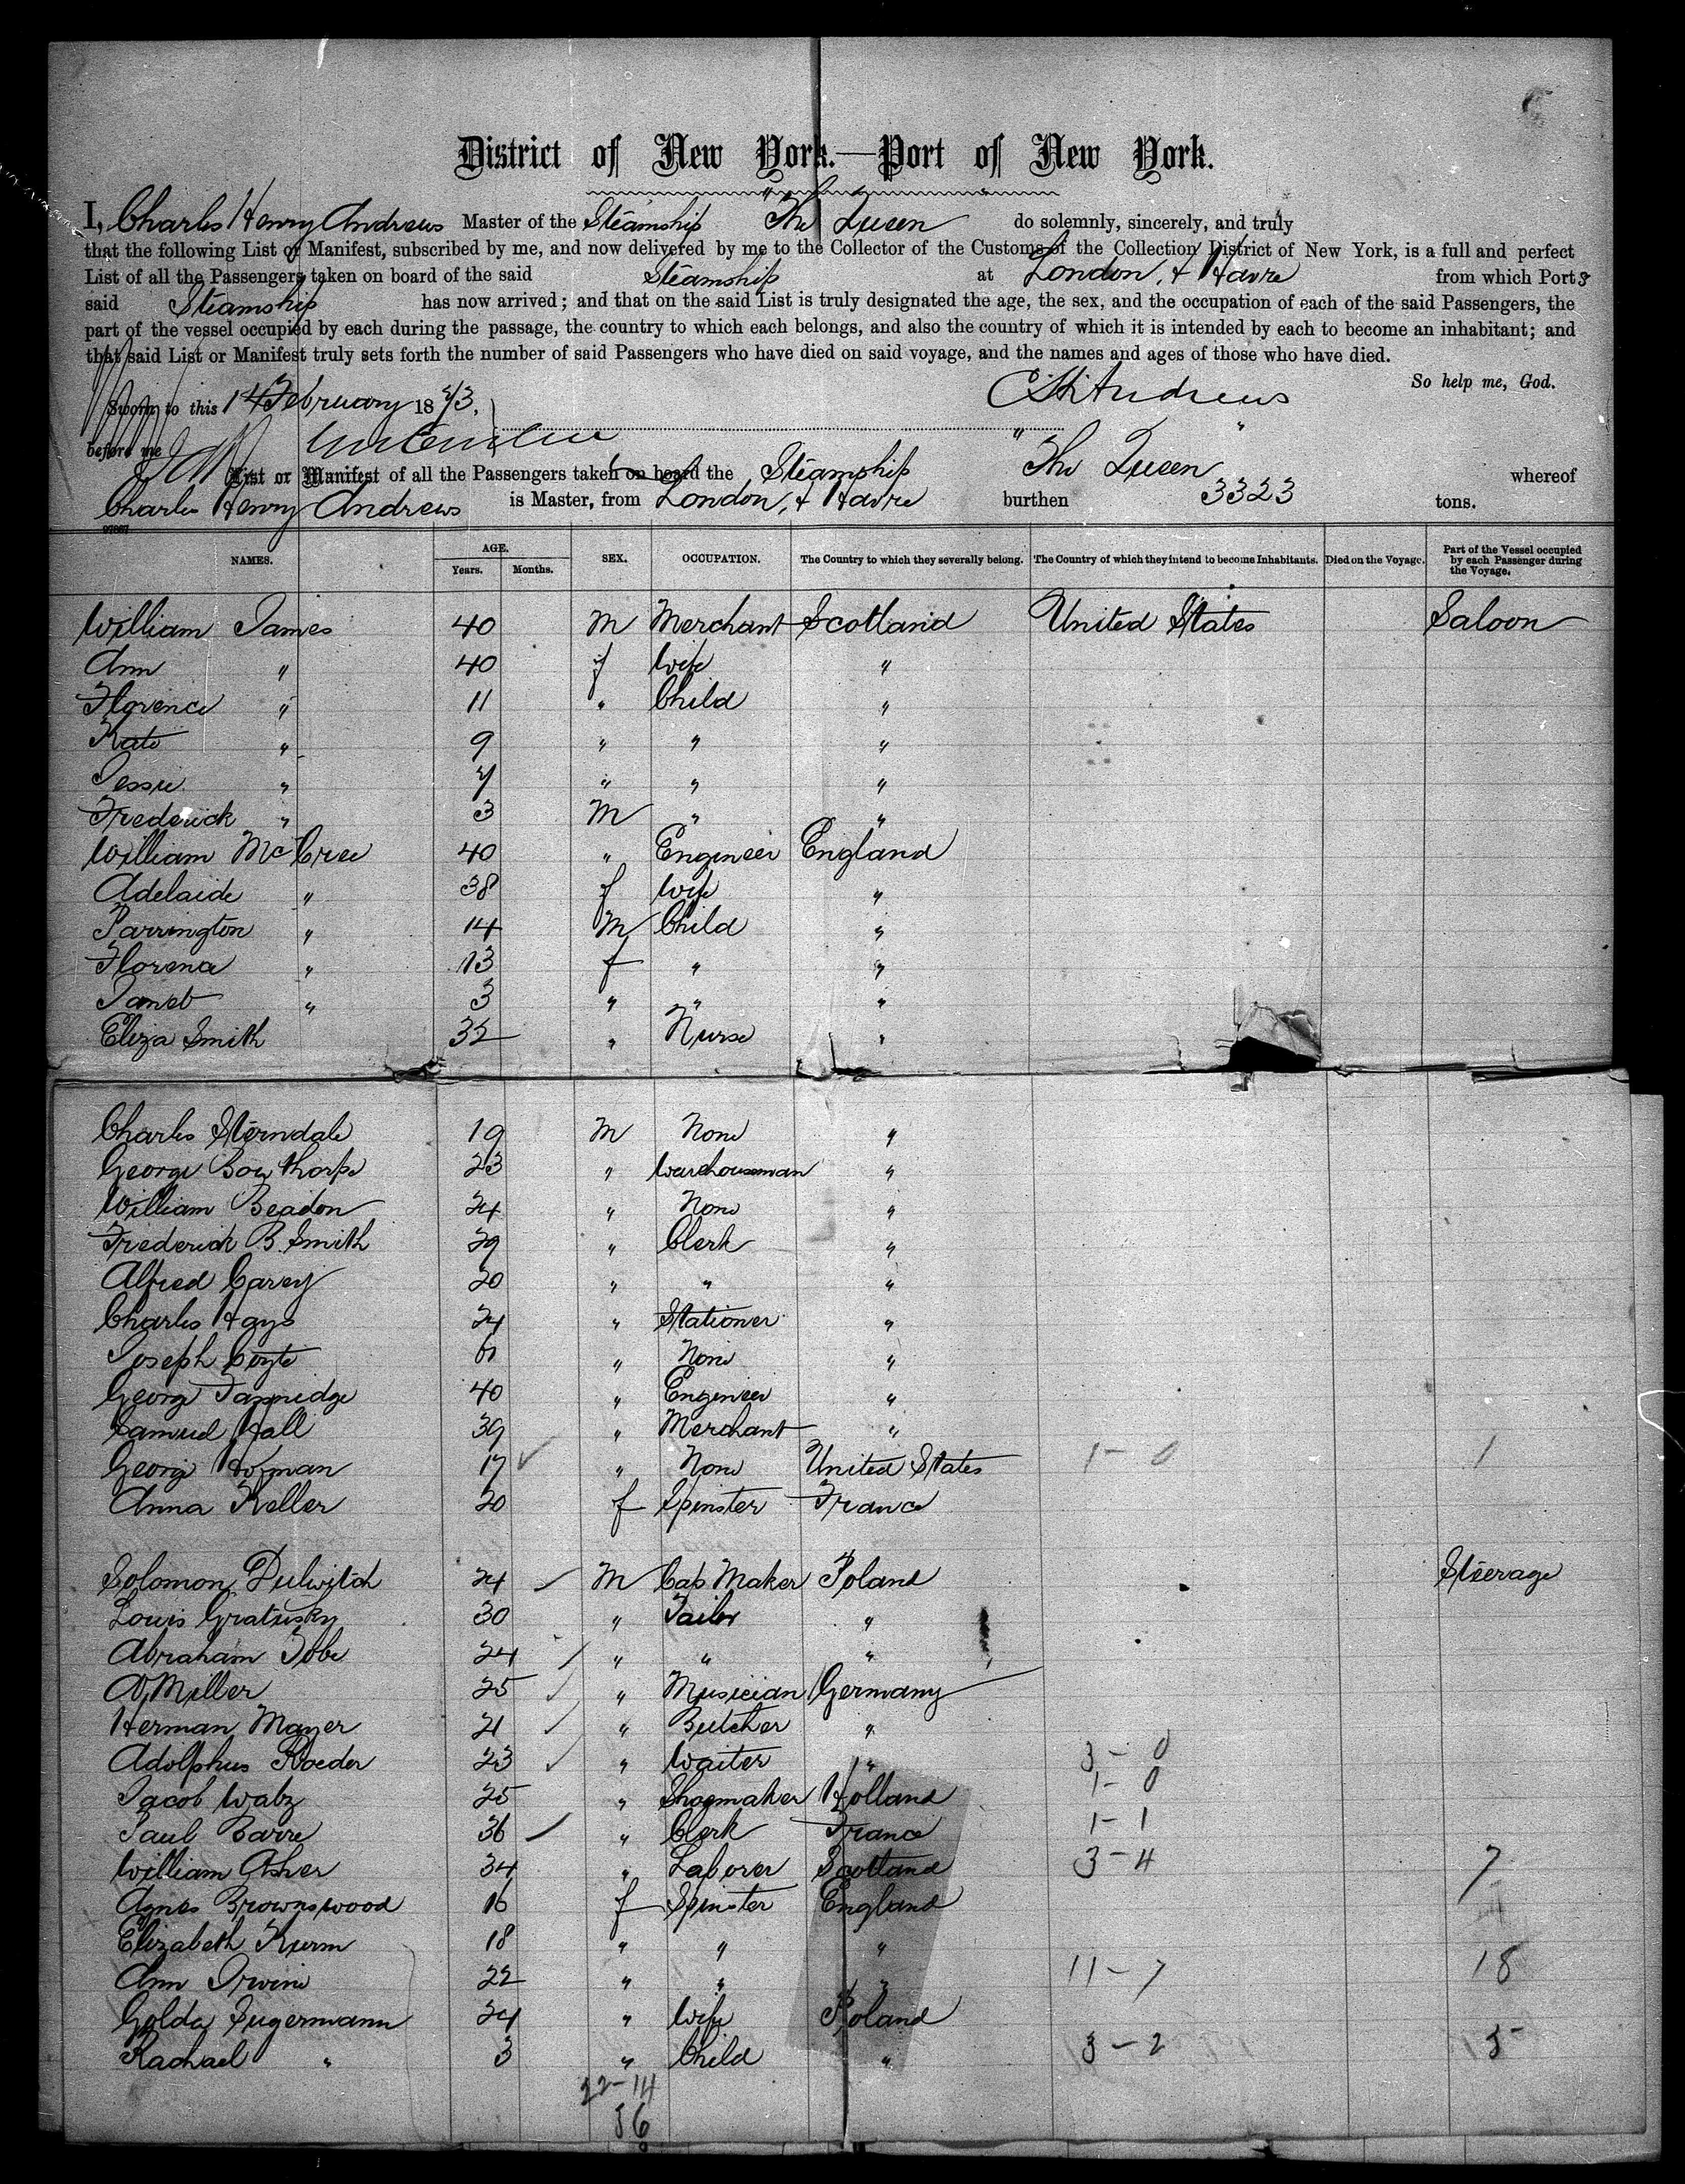 District of New York.—Port of New York.
I, Charles Henry Andrews Master of the Steamship "The Queen" do solemnly, sincerely, and truly
that the following List or Manifest, subscribed by me, and now delivered by me to the Collector of the Customs of the Collection District of New York, is a full and perfect
List of all the Passengers taken on board of the said Steamship at London, & Havre from which Ports
said Steamship has now arrived; and that on the said List is truly designated the age, the sex, and the occupation of each of the said Passengers, the
part of the vessel occupied by each during the passage, the country to which each belongs, and also the country of which it is intended by each to become an inhabitant; and
that said List or Manifest truly sets forth the number of said Passengers who have died on said voyage, and the names and ages of those who have died.
So help me, God.
Sworn to this 14 February 1873, CH Andrews
before me
List or Manifest of all the Passengers taken on board the Steamship "The Queen" whereof
Charles Henry Andrews is Master, from London, & Havre burthen 3323 tons.
97867
NAMES. AGE. Years. Months. SEX. OCCUPATION. The Country to which they severally belong. The Country of which they intend to become Inhabitants. Died on the Voyage. Part of the Vessel occupied by each Passenger during the Voyage.
William James 40 M Merchant Scotland United States Saloon
Ann " 40 f Wife "
Florence " 11 " Child "
Kate " 9 " " "
Jessie " 7 " " "
Frederick " 3 M " "
William McCree 40 " Engineer England
Adelaide " 38 f Wife "
Parrington " 14 M Child "
Florence " 13 f " "
Janet " 3 " " "
Eliza Smith 32 " Nurse "
Charles Sterndale 19 M None "
George Bowthorpe 23 " Warehouseman "
William Beadon 24 " None "
Frederick B. Smith 29 " Clerk "
Alfred Carey 20 " " "
Charles Hays 24 " Stationer "
Joseph Coyte 61 " None "
George 40 " Engineer "
Samuel Hall 39 " Merchant "
George Hofman 17 " None United States 1 - 0 1
Anna Keller 20 f Spinster France
Solomon Dulwitch 24 M Cap Maker Poland Steerage
Louis Gratusky 30 " Tailor "
Abraham Tobe 24 " " "
A Miller 25 " Musician Germany
Herman Mayer 21 " Butcher "
Adolphus Roeder 23 " Waiter " 3 - 0
Jacob Walz 25 " Shoemaker Holland 1 - 0
Paul Barre 36 " Clerk France 1 - 1
William Asher 34 " Laborer Scotland 3 - 4 7
Agnes Brownswood 16 f Spinster England
Elizabeth Kurm 18 " " "
Ann Irwine 22 " " " 11 - 7 18
Golda Sugermann 24 " Wife Poland
Rachael " 3 " Child " 3 - 2 5
22 - 14
36